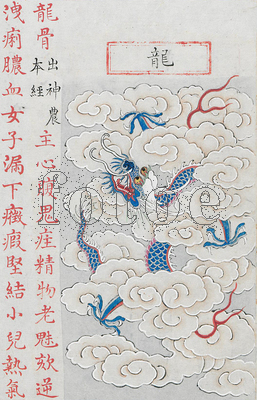 龍
龍骨
出神農
本經
主心腹鬼疰精物老魅欬逆
洩痢膿血女子漏下癥瘕堅結小兒熱氣
fotoe